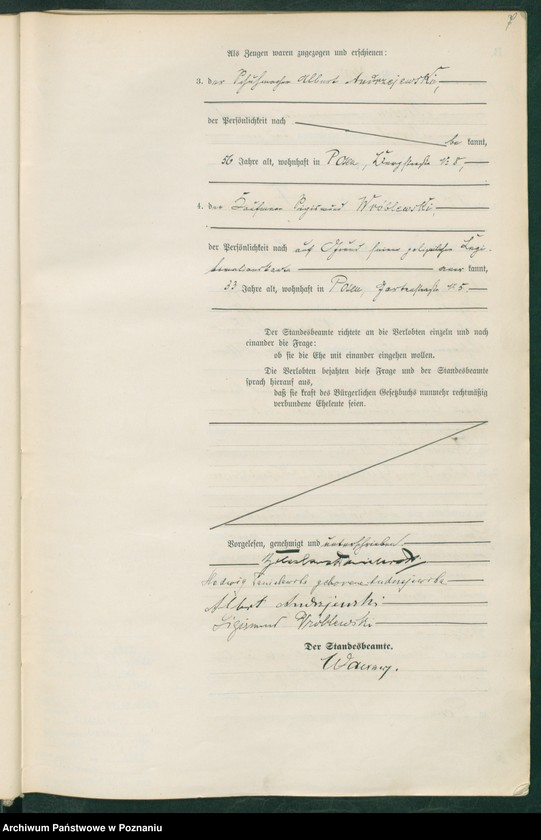 Als Zeugen waren zugezogen und erschienen:
3. der Schuhmacher Albert Andrzejewski,
der Persönlichkeit nach
be kannt,
56 Jahre alt, wohnhaft in Posen, Bergstraße № 8,
4. der Kaufmann Sigismund Wróblewski
der Persönlichkeit nach auf Grund seiner polizeilichen Legi-
timationskarte aner kannt,
33 Jahre alt, wohnhaft in Posen, Gartenstraße № 5.
Der Standesbeamte richtete an die Verlobten einzeln und nach
einander die Frage:
ob sie die Ehe mit einander eingehen wollen.
Die Verlobten bejahten diese Frage und der Standesbeamte
sprach hierauf aus,
daß sie kraft des Bürgerlichen Gesetzbuchs nunmehr rechtmäßig
verbundene Eheleute seien.
Vorgelesen, genehmigt und unterschrieben.
Hedwig geborene Andrzejewska
Albert Andrzejewski
Sigismund Wróblewski
Der Standesbeamte.
Archiwum Państwowe w Poznaniu